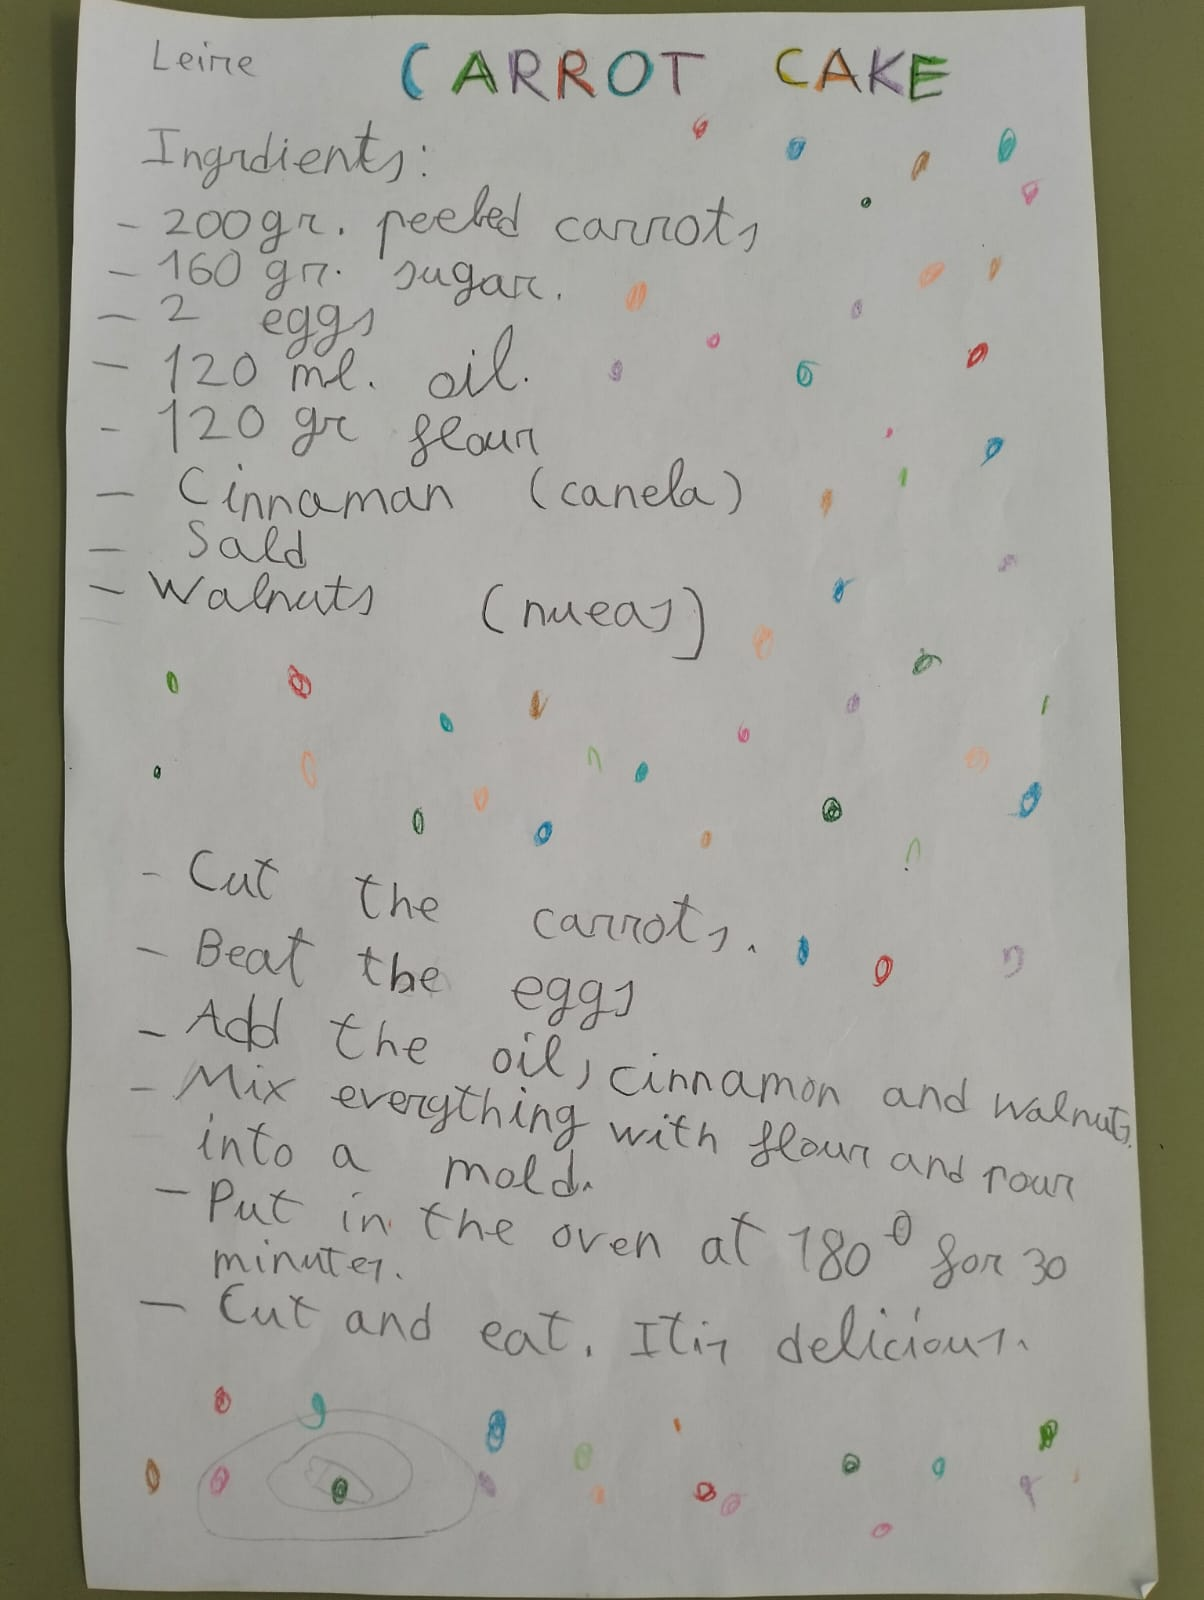 Leire CARROT CAKE
Ingrdients:
- 200gr. peeled carrots
- 160 gr. sugar.
- 2 eggs
- 120 ml. oil.
- 120 gr flour
- Cinnaman (canela)
- Sald
- Walnuts (nueas)
- Cut the carrots.
- Beat the eggs
- Add the oil, cinnamon and walnuts.
- Mix everything with flour and pour
into a mold.
- Put in the oven at 180º for 30
minutes.
- Cut and eat. It is delicious.